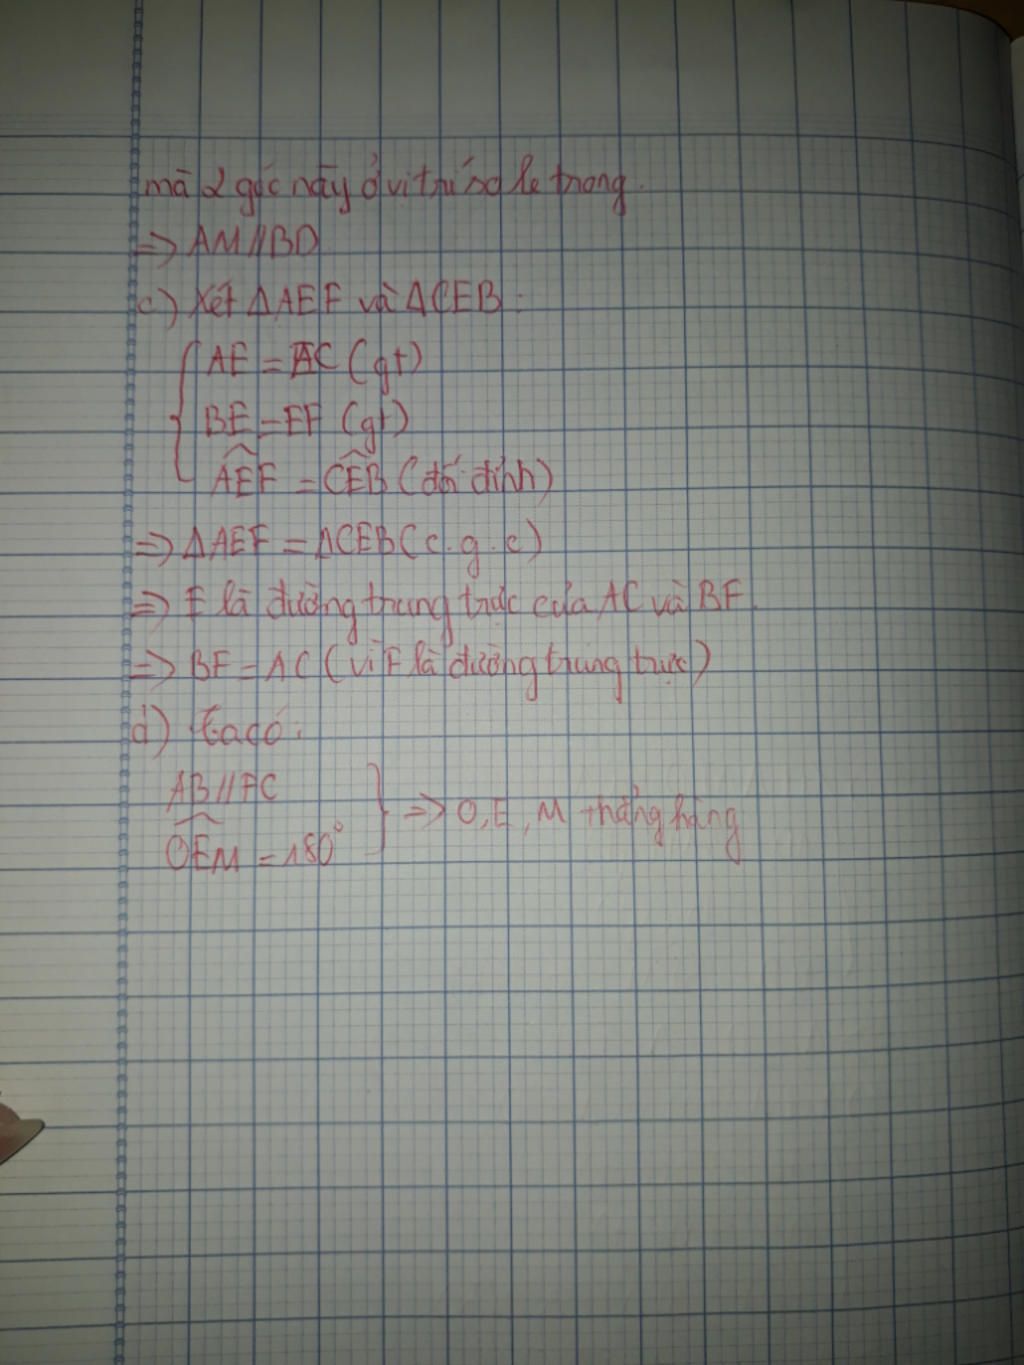 mà 2 góc này ở vị trí so le trong.
=> AM//BD
c) Xét ΔAEF và ΔCEB:
AE = EC (gt)
BE = EF (gt)
AEF = CEB (đối đỉnh)
=> ΔAEF = ΔCEB (c.g.c)
=> E là đường trung trực của AC và BF.
=> BF = AC (vì F là đường trung trực)
d) Ta có:
AB//FC
OEM = 180° => O, E, M thẳng hàng